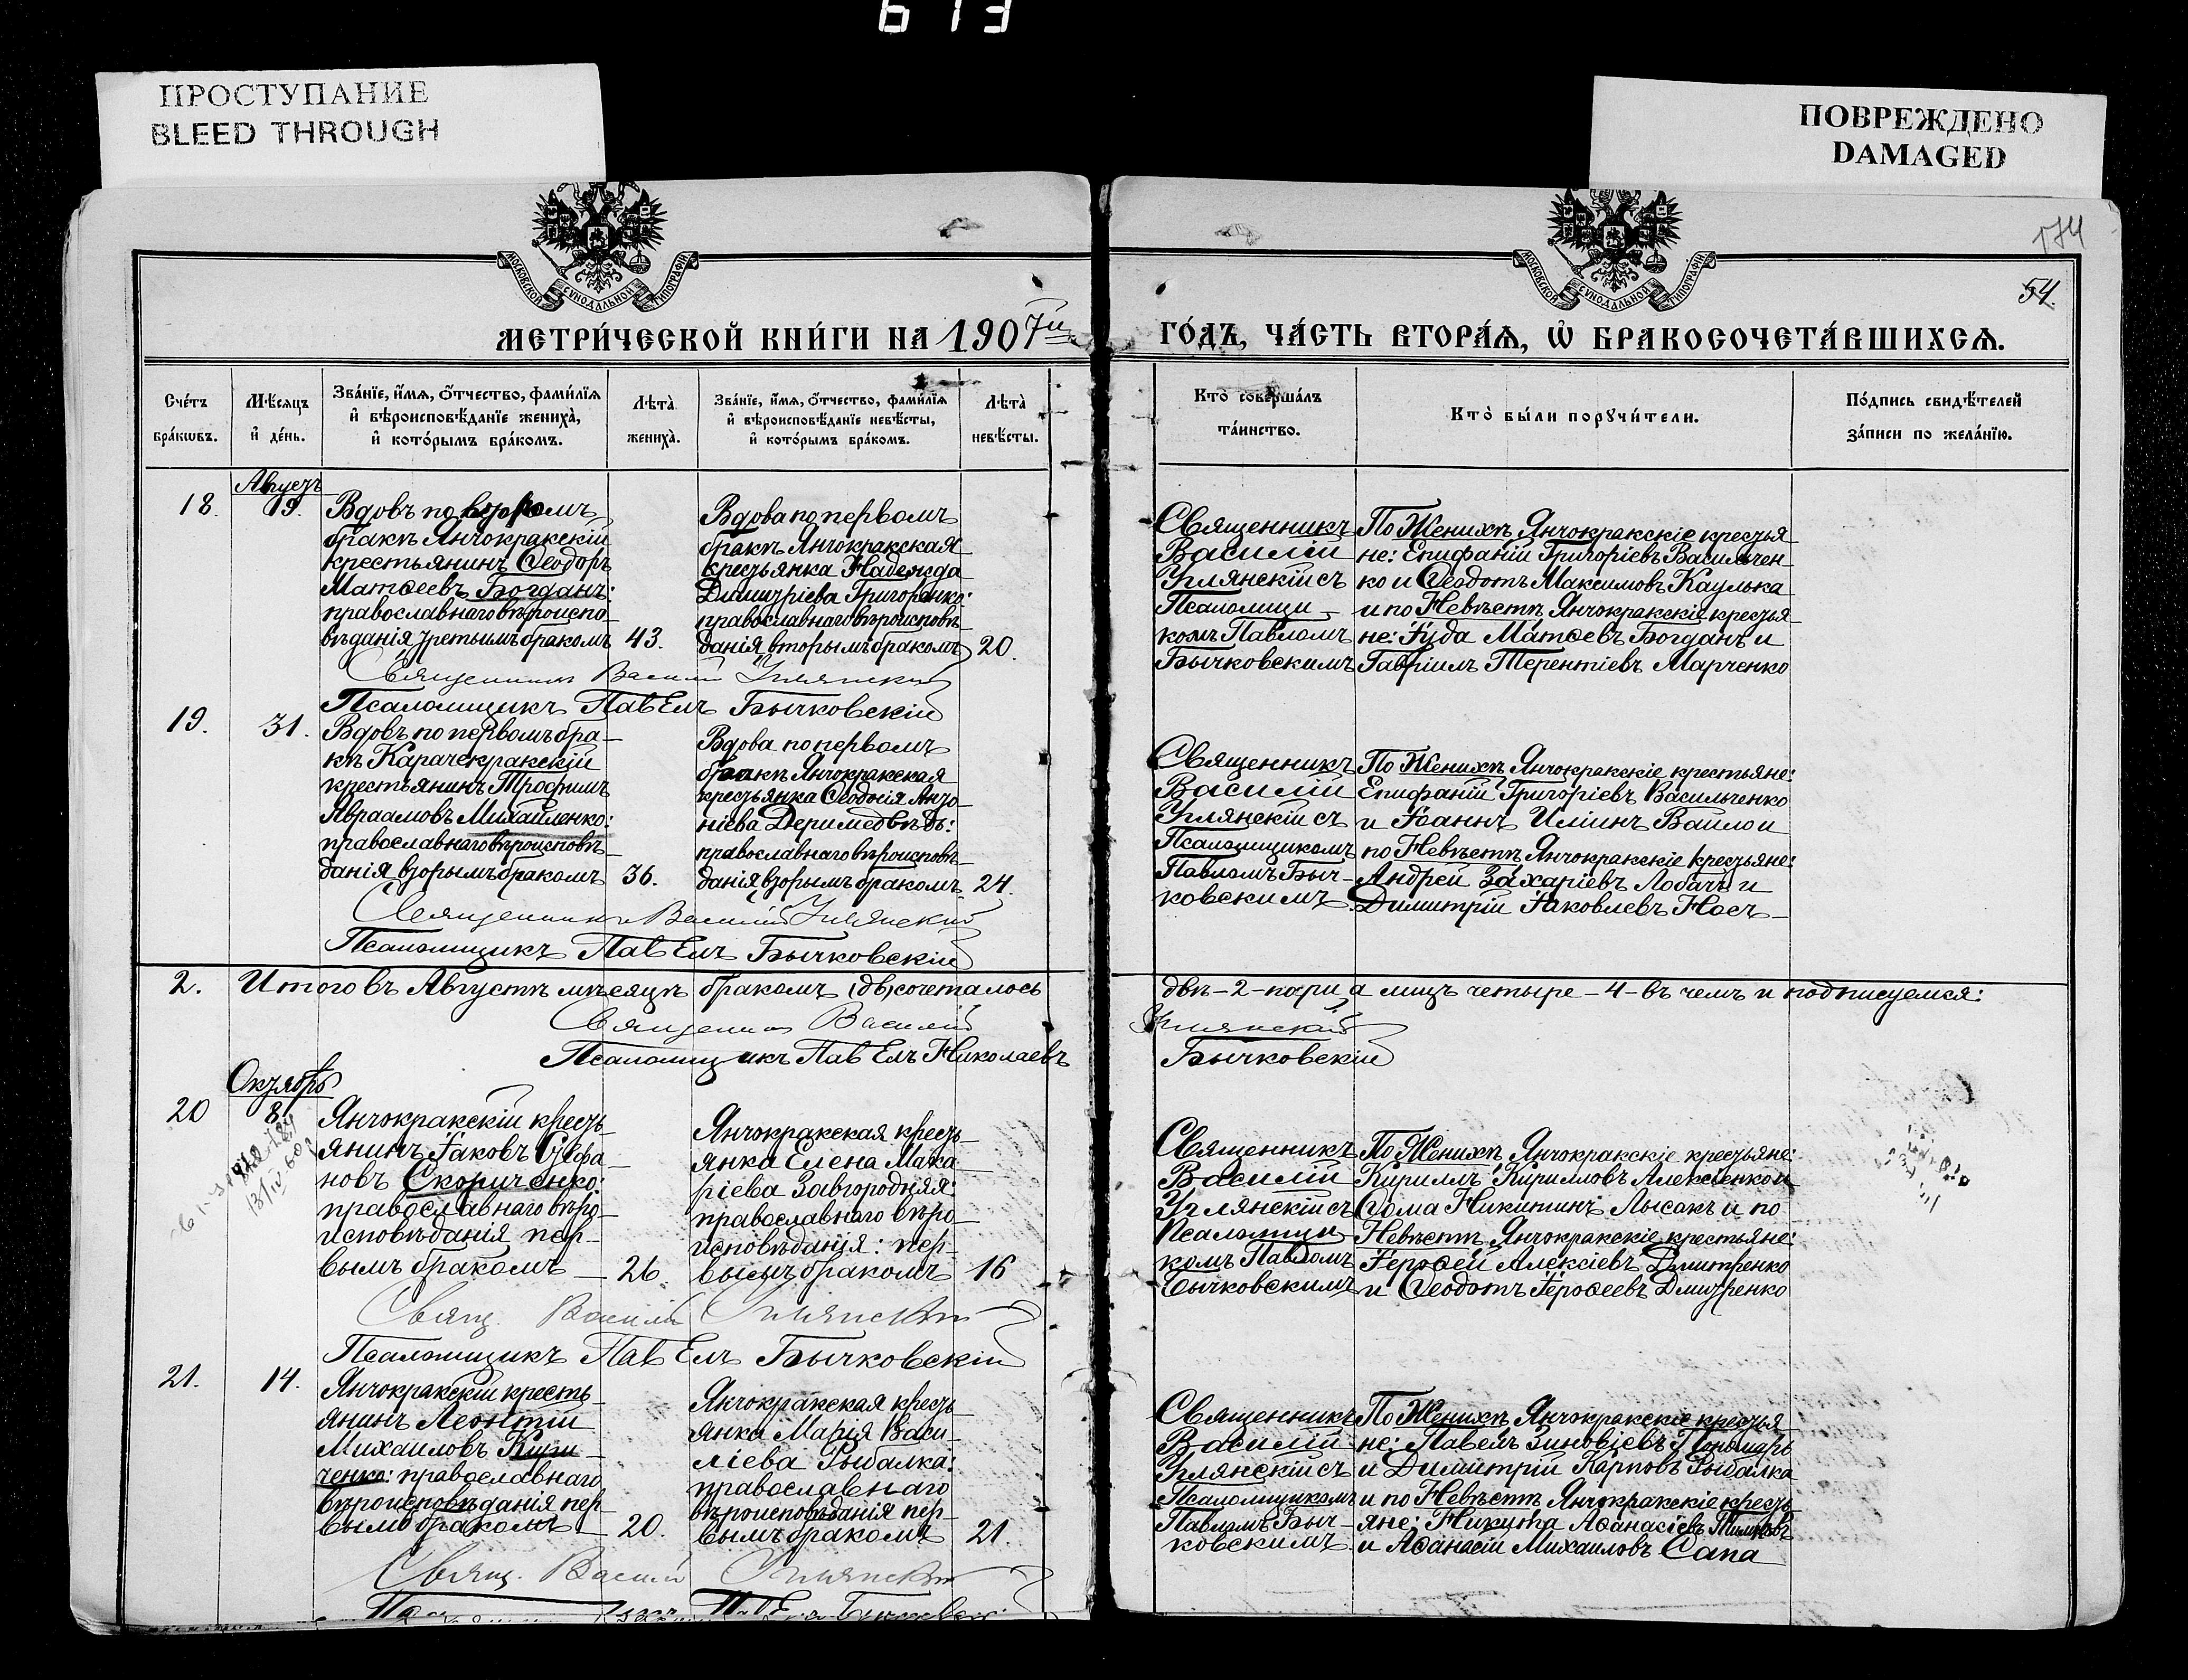 613
ПРОСТУПАНИЕ
BLEED THROUGH
ПОВРЕЖДЕНО
DAMAGED
МОСКОВСКОЙ СѴНОДАЛЬНОЙ ТИПОГРАФІИ
МОСКОВСКОЙ СѴНОДАЛЬНОЙ ТИПОГРАФІИ
174
54.
МЕТРИ́ЧЕСКОЙ КНИ́ГИ НА 1907й
ГО́ДЪ, ЧА́СТЬ ВТОРА́Ѧ, Ѽ БРАКОСОЧЕТА́ВШИХСѦ.
Сче́тъ
бра́кѡвъ.
Мѣ́сѧцъ
и҆ де́нь.
Зва́нїе, и҆́мѧ, ѻ҆́тчество, фами́лїѧ
и҆ вѣроисповѣ́данїе жениха̀,
и҆ кото́рымъ бра́комъ.
Лѣта̀
жениха̀.
Зва́нїе, и҆́мѧ, ѻ҆́тчество, фами́лїѧ
и҆ вѣроисповѣ́данїе невѣ́сты,
и҆ кото́рымъ бра́комъ.
Лѣта̀
невѣ́сты.
Кто̀ соверша́лъ
та́инство.
Кто̀ бы́ли порꙋчи́тели.
По́дпись свидѣ́телей
за́писи по жела́нїю.
Августъ
18.
19.
Вдовъ по второмъ
бракѣ Янчокракскій
крестьянинъ Ѳеодоръ
Матѳеевъ Богданъ:
православнаго вѣроиспо-
вѣданія третьимъ бракомъ
43.
Вдова по первомъ
бракѣ Янчокракская
крестьянка Надежда
Димитріева Григоренко:
православнаго вѣроисповѣ-
данія вторымъ бракомъ
20.
Священникъ
Василій
Углянскій съ
Псаломщи-
комъ Павломъ
Бычковскимъ
По Женихѣ Янчокракскіе крестья-
не: Епифаній Григоріевъ Васильчен-
ко и Ѳеодотъ Максимовъ Каулька
и по Невѣстѣ Янчокракскіе крестья-
не: Іуда Матѳеевъ Богданъ и
Гавріилъ Терентіевъ Марченко
Священникъ Василій Углянскій
Псаломщикъ Павелъ Бычковскій
19.
31.
Вдовъ по первомъ бра-
кѣ Карачекракскій
крестьянинъ Трофимъ
Авраамовъ Михайленко:
православнаго вѣроисповѣ-
данія вторымъ бракомъ
36.
Вдова по первомъ
бракѣ Янчокракская
крестьянка Ѳеодосія Анто-
ніева Деримедвѣдь:
православнаго вѣроисповѣ-
данія вторымъ бракомъ
24.
Священникъ
Василій
Углянскій съ
Псаломщикомъ
Павломъ Быч-
ковскимъ
По Женихѣ Янчокракскіе крестьяне:
Епифаній Григоріевъ Васильченко
и Іоаннъ Иліинъ Вайло и
по Невѣстѣ Янчокракскіе крестьяне:
Андрей Захаріевъ Лобачъ и
Димитрій Іаковлевъ Носъ
Священникъ Василій Углянскій
Псаломщикъ Павелъ Бычковскій
2. Итого въ Августѣ мѣсяцѣ бракомъ (дв) сочеталось
двѣ-2-пары а лицъ четыре-4-въ чемъ и подписуемся:
Священникъ Василій
Углянскій
Псаломщикъ Павелъ Николаевъ
Бычковскій
Октябрь
20
8.
Янчокракскій кресть-
янинъ Іаковъ Стефа-
новъ Скориченко:
православнаго вѣро-
исповѣданія пер-
вымъ бракомъ
26.
Янчокракская кресть-
янка Елена Мака-
ріева Завгородняя:
православнаго вѣро-
исповѣданія: пер-
вымъ бракомъ
16
Священникъ
Василій
Углянскій съ
Псаломщи-
комъ Павломъ
Бычковскимъ
По Женихѣ Янчокракскіе крестьяне:
Кириллъ Кирилловъ Алексіенко и
Ѳома Никитинъ Лысакъ и по
Невѣстѣ Янчокракскіе крестьяне:
Іероѳей Алексіевъ Дмитренко
и Ѳеодотъ Іероѳеевъ Дмитренко
Свящ. Василій Углянскій
Псаломщикъ Павелъ Бычковскій
21.
14.
Янчокракскій кресть-
янинъ Леонтій
Михаиловъ Кири-
ченко: православнаго
вѣроисповѣданія пер-
вымъ бракомъ
20.
Янчокракская кресть-
янка Марія Васи-
ліева Рыбалка:
православнаго
вѣроисповѣданія пер-
вымъ бракомъ
21.
Священникъ
Василій
Углянскій съ
Псаломщикомъ
Павломъ Быч-
ковскимъ
По Женихѣ Янчокракскіе крестья-
не: Павелъ Зиновіевъ Пономарь
и Димитрій Карповъ Рыбалка
и по Невѣстѣ Янчокракскіе кресть-
яне: Никита Аѳанасіевъ
и Аѳанасій Михаиловъ Сапа
Свящ. Василій Углянскій